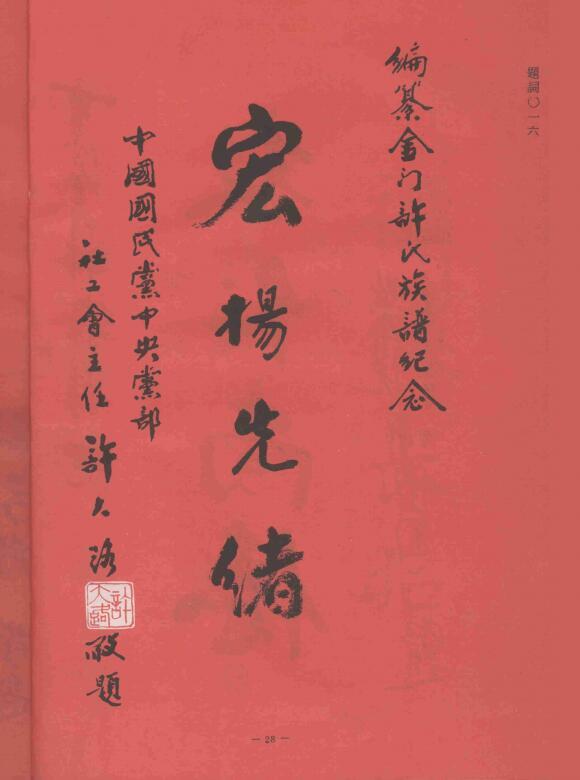 題詞〇一六
編纂金门許氏族譜纪念
宏揚先緒
中國國民黨中央黨部
社工會主任 許大路
許大路
敬題
— 28 —